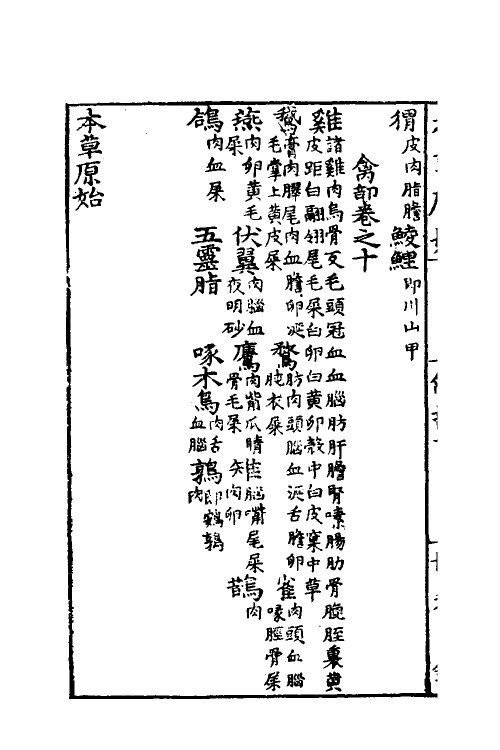 猬皮肉脂膽 鯪鯉即川山甲
禽部卷之十
雞諸雞肉烏骨反毛頭冠血血腦肪肝膽腎嗉腸肋骨脛裏黃
皮距白翮翎尾毛屎白卵白黃卵殼中白皮窠中草
鵝膏肉臎尾肉血膽卵涎
毛掌上黃皮屎
鶩肪肉頭腦血涎舌膽卵
肫衣屎
雀肉頭血腦
喙脛骨屎
燕肉卵黃毛
屎
伏翼肉腦血
夜明砂
鷹肉嘴爪睛
骨毛屎
腦嘴尾屎
肉卵
肉
鴿肉血屎 五靈脂 啄木鳥肉舌
血腦
鶉即鵪鶉
肉
本草原始